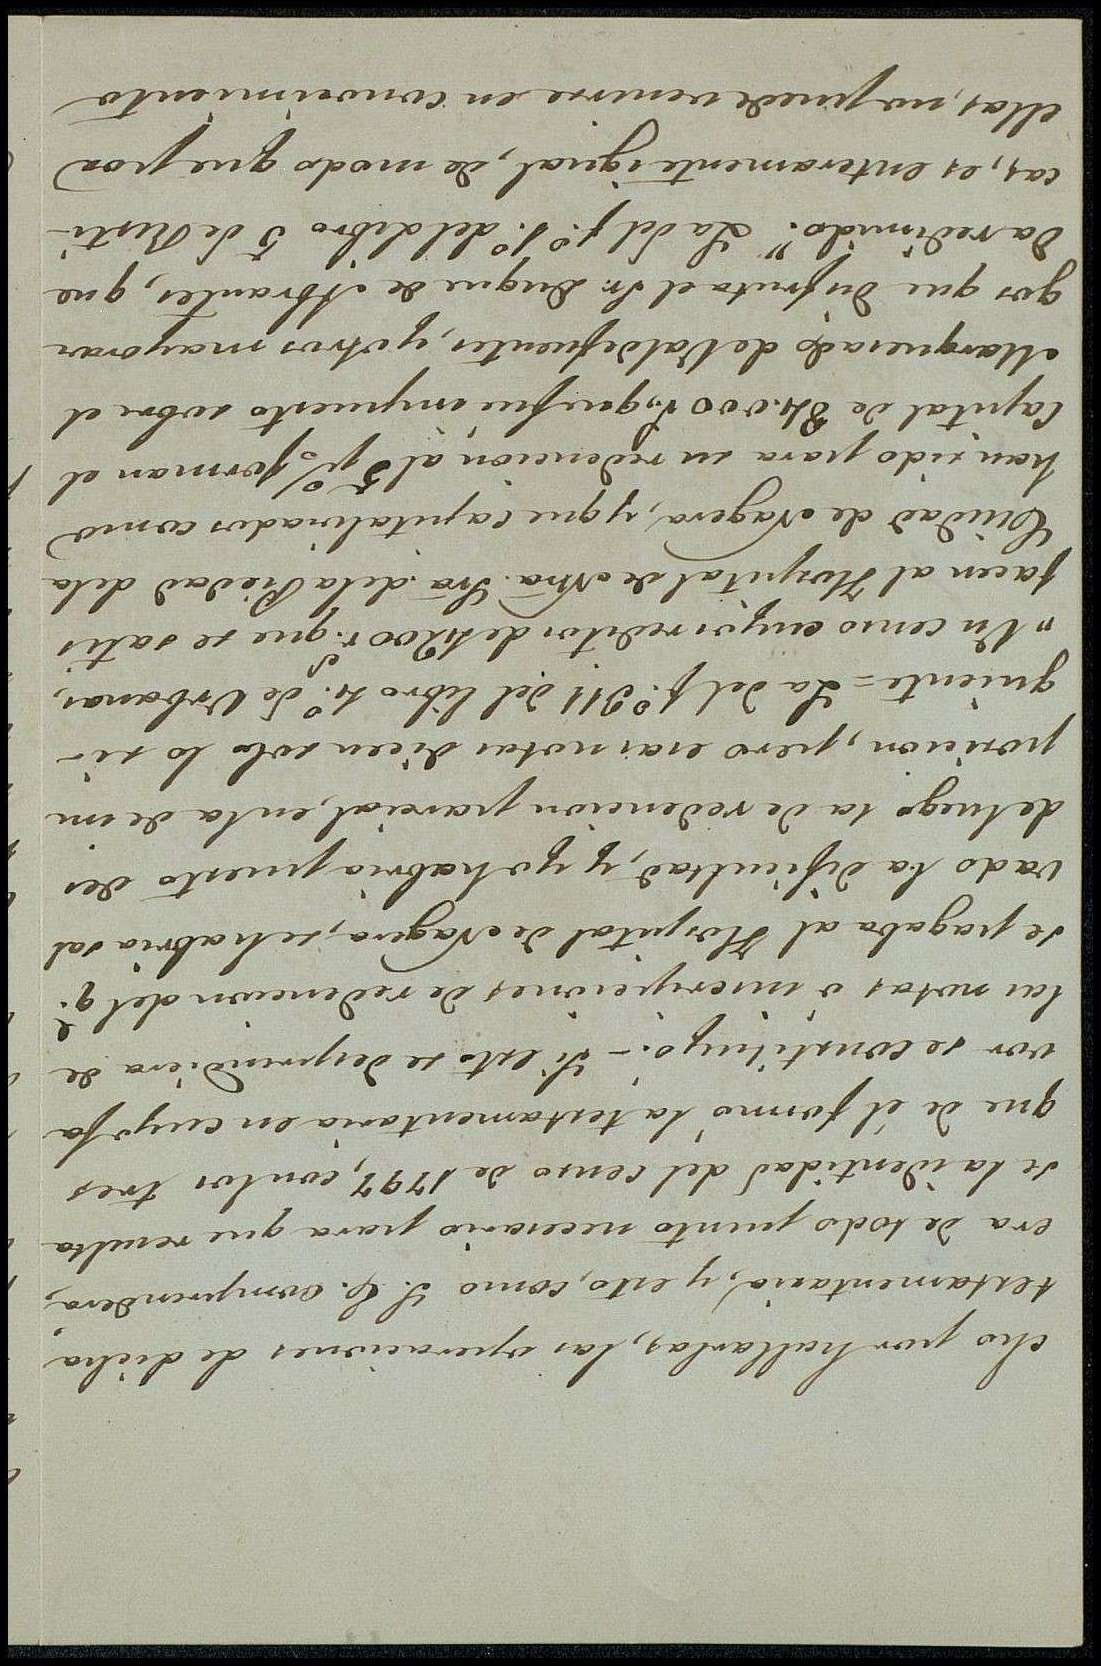 cho por hallarlas, las operaciones de dicha
testamentaria, y esto, como S. E. comprenderá,
era de todo punto necesario para que resulta
se la identidad del censo de 1797, con los tres
que de él formó la testamentaria en cuyo fa
vor se constituyó. - Si esto se desprendiera de
las notas ó inscripciones de redencion del q.e
se pagaba al Hospital de Nagera, se habria sal
vado la dificultad, y yo habria puesto des
de luego la de redencion parcial, en la de im
posicion, pero esas notas dicen solo lo si-
guiente = La del f.o 211 del libro 4.o de Urbanas,
"Un censo cuyos reditos de 4200 r.s que se satis
facen al Hospital de Ntra. Sra. de la Piedad de la
Ciudad de Nagera, y que capitalizados como
han sido para su redencion al 5 p% forman el
Capital de 84.000 r.s, que fue impuesto sobre el
Marquesado de Valdefuentes, y otros mayoraz
gos que disfruta el Sr. Duque de Abrantes, que
da redimido." La del f.o 1.o del libro 5 de Rusti-
cas, es enteramente igual, de modo que por
ellas, no puede venirse en conocimiento